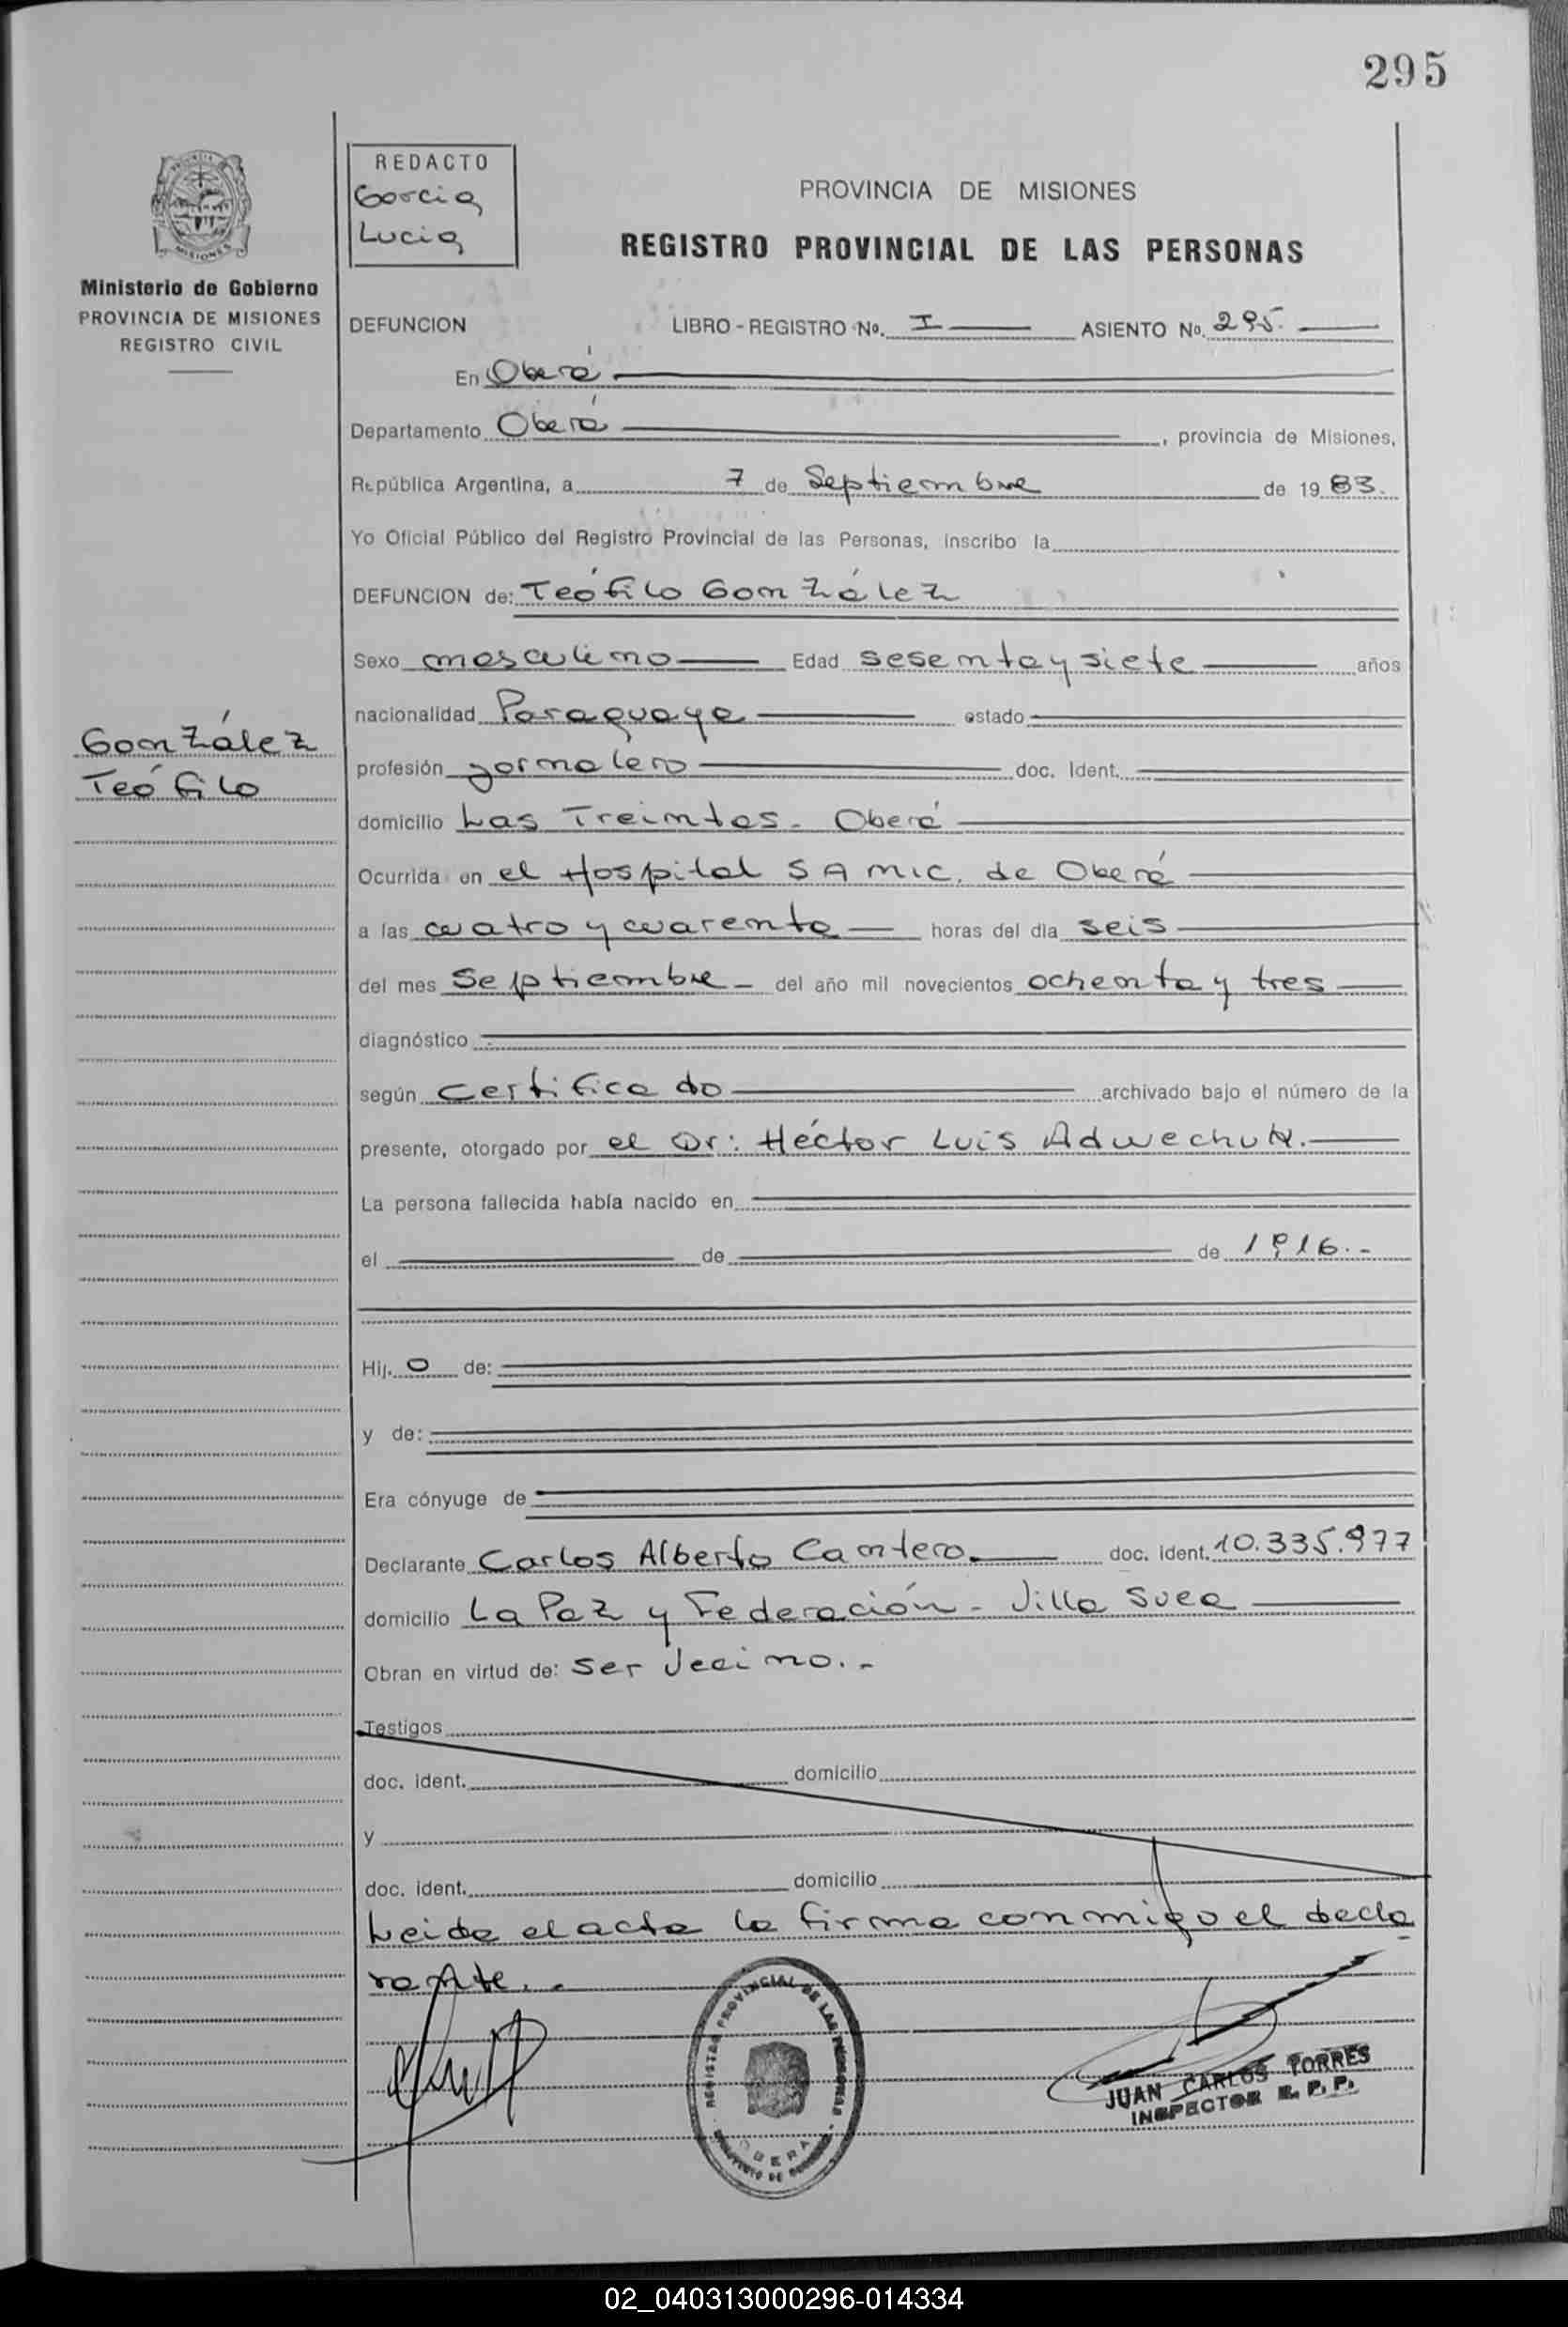 295
REDACTO
Garcia
Lucia
PROVINCIA DE MISIONES
REGISTRO PROVINCIAL DE LAS PERSONAS
MISIONES
Ministerio de Gobierno
PROVINCIA DE MISIONES
REGISTRO CIVIL
DEFUNCION LIBRO - REGISTRO No. I ASIENTO No. 295.
En Oberá
Departamento Oberá, provincia de Misiones,
República Argentina, a 7 de Septiembre de 1983.
Yo Oficial Público del Registro Provincial de las Personas, inscribo la
DEFUNCION de: Teófilo González
Sexo masculino Edad sesenta y siete años
nacionalidad Paraguaya estado
González
Teófilo
profesión jornalero doc. Ident.
domicilio Las Treintas - Oberá
Ocurrida en el Hospital SAMIC. de Oberá
a las cuatro y cuarenta horas del día seis
del mes Septiembre - del año mil novecientos ochenta y tres
diagnóstico
según Certificado archivado bajo el número de la
presente, otorgado por el Dr: Héctor Luis
La persona fallecida había nacido en
el de de 1916.-
Hij. o de:
y de:
Era cónyuge de
Declarante Carlos Alberto Cantero. doc. ident. 10.335.977
domicilio La Paz y Federación - Villa Svea
Obran en virtud de: Ser Vecino.-
Testigos
doc. ident. domicilio
y
doc. ident. domicilio
Leida el acta la firma conmigo el decla
rante.-
REGISTRO PROVINCIAL DE LAS PERSONAS
OBERA
JUAN CARLOS TORRES
INSPECTOR R. P. P.
02_040313000296-014334